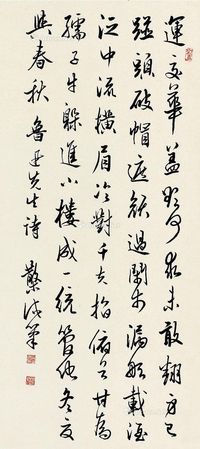 運交華蓋欲何求未敢翻身已
碰頭破帽遮顏過鬧市漏船載酒
泛中流橫眉冷對千夫指俯首甘為
孺子牛躲進小樓成一統管他冬夏
與春秋 魯迅先生詩 筆